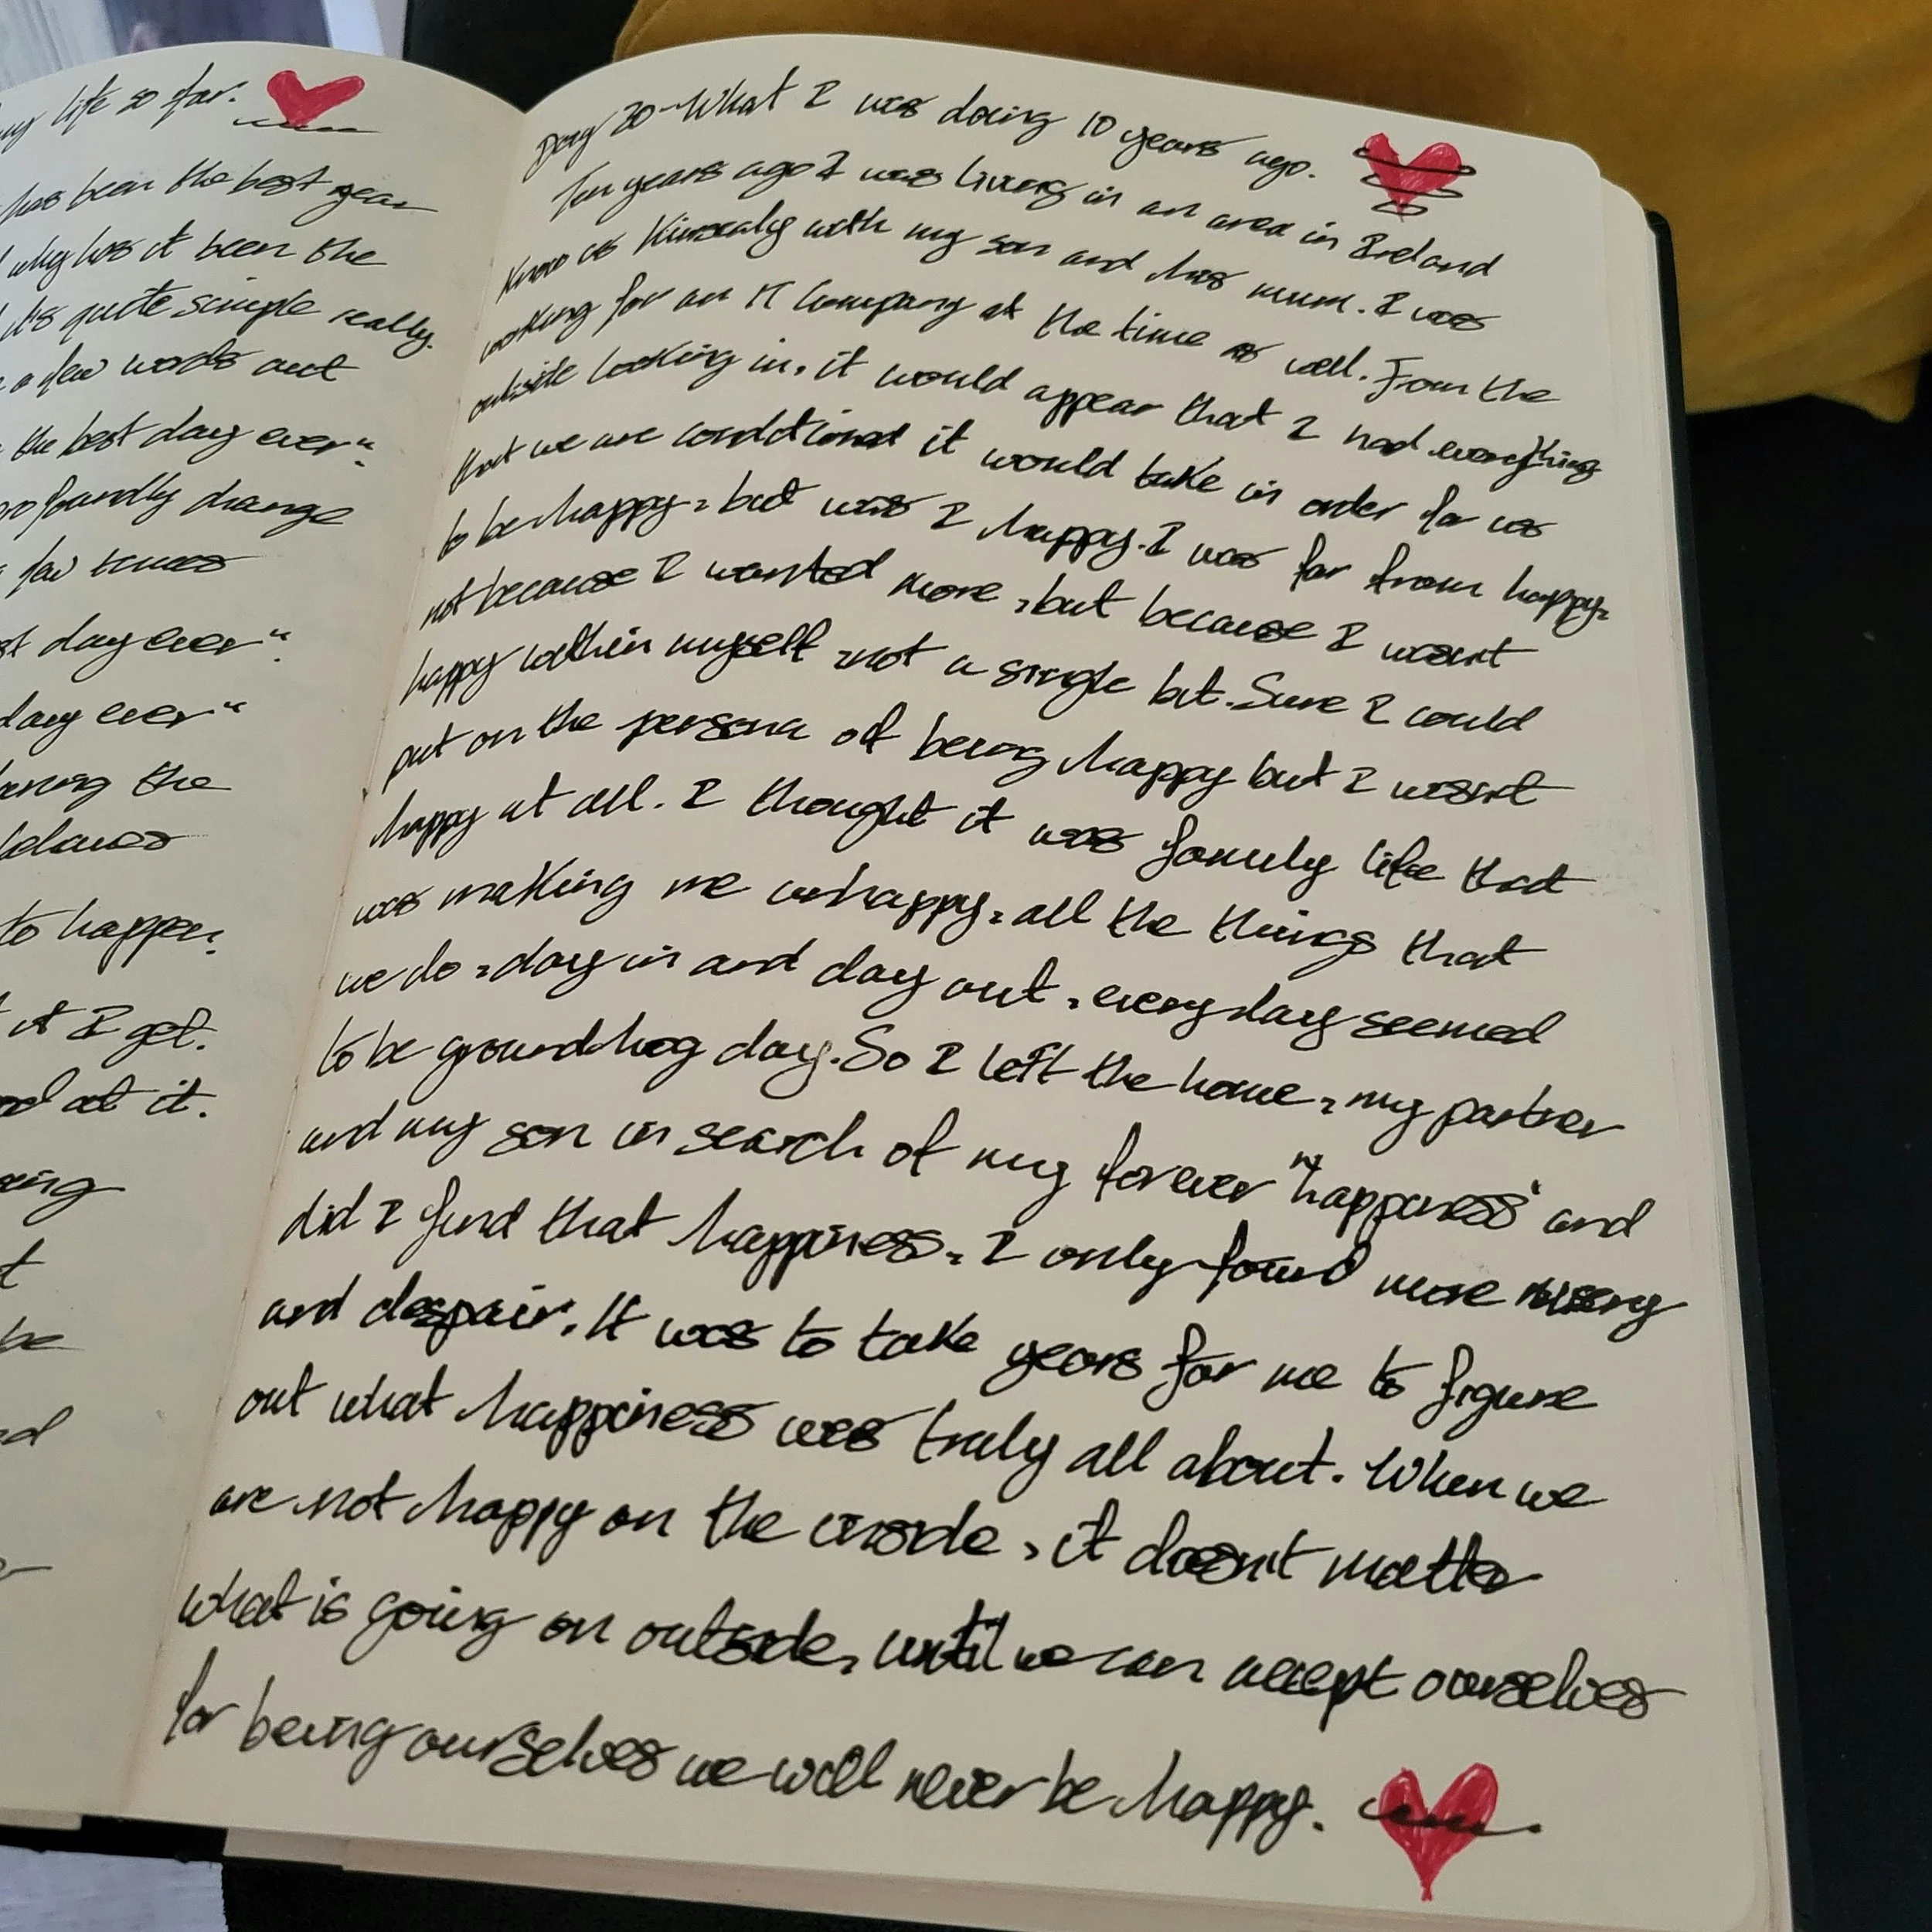 my life so far.
has been the best year
why has it been the
it's quite simple really.
a few words out
the best day ever".
profoundly change
few times
day ever".
day ever"
the
to happen.
it I get.
at it.
be
Day 30 - What I was doing 10 years ago.
Ten years ago I was living in an area in Ireland
know as Kinsealy with my son and his mum. I was
working for an IT Company at the time as well. From the
outside looking in, it would appear that I had everything
that we are conditioned it would take in order for us
to be happy, but was I happy. I was far from happy,
not because I wanted more, but because I wasn't
happy within myself, not a single bit. Sure I could
put on the persona of being happy but I wasn't
happy at all. I thought it was family life that
was making me unhappy, all the things that
we do, day in and day out, every day seemed
to be groundhog day. So I left the home, my partner
and my son in search of my forever "happiness" and
did I find that happiness, I only found more misery
and despair. It was to take years for me to figure
out what happiness was truly all about. When we
are not happy on the inside, it doesn't matter
what is going on outside, until we can accept ourselves
for being ourselves we will never be happy.